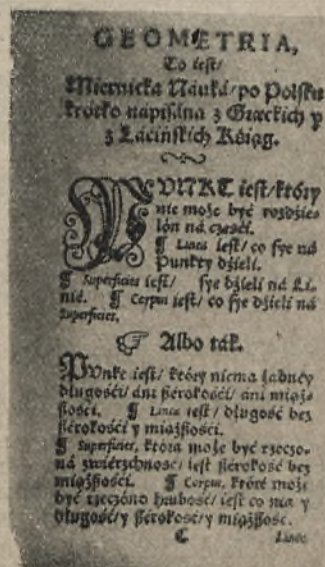 GEOMETRIA,
To iest/
Miernicka Náuká/po Polsku
krótko nápisána z Græckich y
z Láćińskich Kśiąg.
PVNKT iest/który
nie może być rozdźie-
lón ná częśći.
¶ Linea iest/ co sye ná
Punkty dźieli.
¶ Superficies iest/ sye dźieli ná Li-
nie. ¶ Corpus iest/ co sye dźieli ná
Superficies.
☞ Albo ták.
PVnkt iest/ który niema żadney
długośći/ áni szerokośći/ áni miąż-
szośći. ¶ Linea iest/ długość bez
szerokośći y miąższośći.
¶ Superficies, która może być rzeczo-
ná zwierzchność/ iest szerokość bez
miąższośći. ¶ Corpus, które może
być rzeczóno hrubość/ iest co ma y
długość/y szerokość/y miąższość.
C Linea